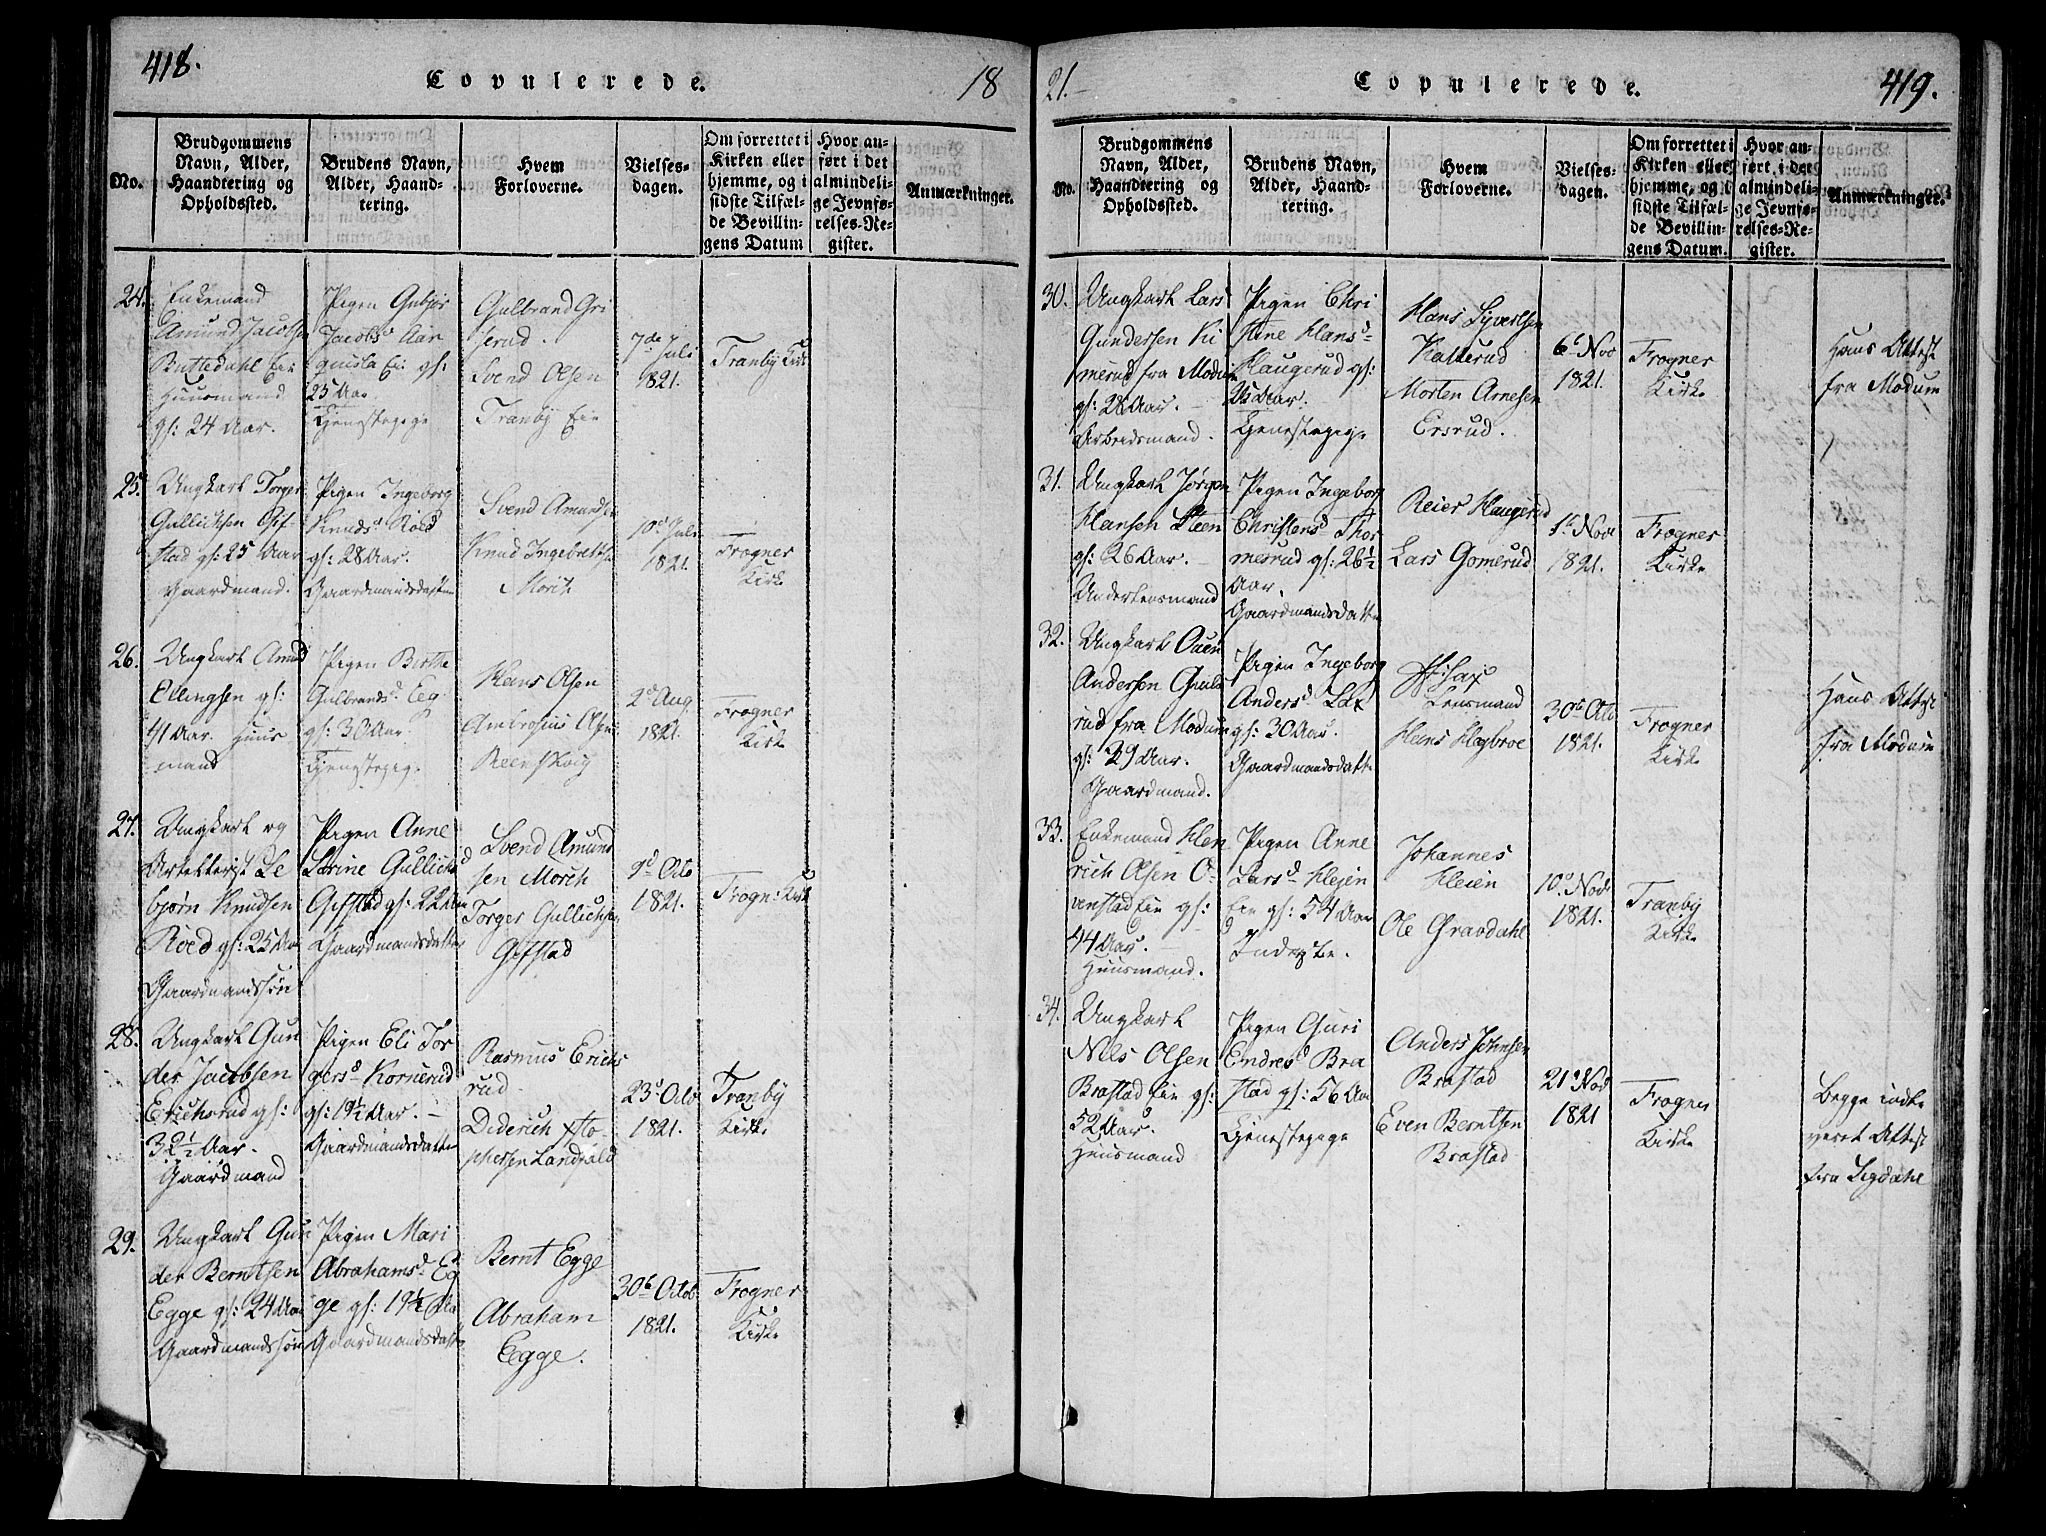 418.
Copulerede.
18
No.
Brudgommens
Navn, Alder,
Haandtering og
Opholdssted.
Brudens Navn,
Alder, Haand-
tering.
Hvem
Forloverne.
Vielses-
dagen.
Om forrettet i
Kirken eller
hjemme, og i
sidste Tilfæl-
de Bevillin-
gens Datum
Hvor an-
ført i det
almindeli-
ge Jevnfø-
relses-Re-
gister.
Anmærkninger.
24.
Enkemand
Amund Jacobsen
Huusmand
gl: 24 Aar.
Pigen Gubjør
Jacobsd
25 Aar
Tjenestepige
Gulbrand Gri
serud.
Svend Olsen
Tranby Eie
7de Juli
1821.
Tranby Kirk
25.
Ungkarl Torger
Gullichsen Gif-
stad gl: 25 Aar
Gaardmand.
Pigen Ingeborg
Knudsd Roed
gl: 28 Aar.
Gaardmandsdatter
Svend Amundsen
Knud Ingebretsen
Morth
10d Juli
1821.
Frogner
Kirke
26.
Ungkarl Amund
Ellingsen gl:
41 Aar. Huus
mand
Pigen Berthe
Gulbrandsd Eeg
gl: 30 Aar.
Tjenestepig.
Hans Olsen
Ambrosius Olsen
Reenskoug
2d Aug
1821.
Frogner
Kirke
27.
Ungkarl og
bjørn Knudsen
Roed gl: 25 Aar
Gaardmandssøn
Pigen Anne
Karine Gullichsd
Gifstad gl: 22 Aar
Gaardmandsdatter
Svend Amund
sen Morth
Torger Gullichsen
Gifstad
9d Octo
1821.
Frogn: Kirk
28.
Ungkarl Gun
der Jacobsen
Erichsrud gl:
32½ Aar.
Gaardmand
Pigen Eli Tor
gersd Kornerud
gl: 19½ Aar. –
Gaardmandsdatter
Rasmus Erichs
rud
Diderich Xsto-
phersen Landfald
23d Octo
1821.
Tranby
Kirke
29.
Ungkarl Gun
der Berntsen
Egge gl: 24 Aar
Gaardmandssøn
Pigen Mari
Abrahamsd Eg
ge gl: 19½ Aar
Gaardmandsdatter
Bernt Egge
Abraham
Egge.
30te Octob
1821.
Frogner
Kirke
21.
Copulerede.
419.
No.
Brudgommens
Navn, Alder,
Haandtering og
Opholdssted.
Brudens Navn,
Alder, Haand-
tering.
Hvem
Forloverne.
Vielses-
dagen.
Om forrettet i
Kirken eller
hjemme, og i
sidste Tilfæl-
de Bevillin-
gens Datum.
Hvor an-
ført i det
almindeli-
ge Jevnfø-
relses-Re-
gister.
Anmærkninger.
30.
Ungkarl Lars
Gundersen Ki
merud fra Modum
gl: 28 Aar. –
Arbeidsmand.
Pigen Chri
stine Hansd
Haugerud gl:
Aar.
Tjenestepige
Hans Syversen
Katterud
Morten Arnesen
Eisrud.
6te Nov
1821.
Frogner
Kirke
Hans Attest
fra Modum
31.
Ungkarl Jørgen
Hansen Steen
gl: 26 Aar. –
Pigen Ingeborg
Christensd Thor
merud gl: 26½
Aar.
Gaardmandsdatter
Reier Haugerud
Lars Gomerud
Nov
1821.
Frogner
Kirke
32.
Ungkarl Ouen
Andersen Guls
rud fra Modum
gl: 29 Aar.
Gaardmand.
Pigen Ingeborg
Andersd Sax
gl: 30 Aar.
Gaardmandsdatter
Sax
Lensmand
Hans Høgbroe
30te Octo
1821.
Frogner
Kirke
Hans Attest
fra Modum
33.
Enkemand Hen
rich Olsen O-
vnstad Eie gl:
44 Aar.
Huusmand.
Pigen Anne
Larsd Hejen
Eie gl: 54 Aar
Inderste.
Johannes
Heien
Ole Gravdahl
10d Nov
1821.
Tranby
Kirke
34.
Ungkarl
Nils Olsen
Brastad Eie gl:
52 Aar.
Huusmand
Pigen Guri
Endresd Bra
stad gl: 56 Aar
Tjenestepige
Anders Johnsen
Brastad
Even Berntsen
Brastad
21d Nov
1821
Frogner
Kirke
Begge indle
veret Attest
fra Sigdahl